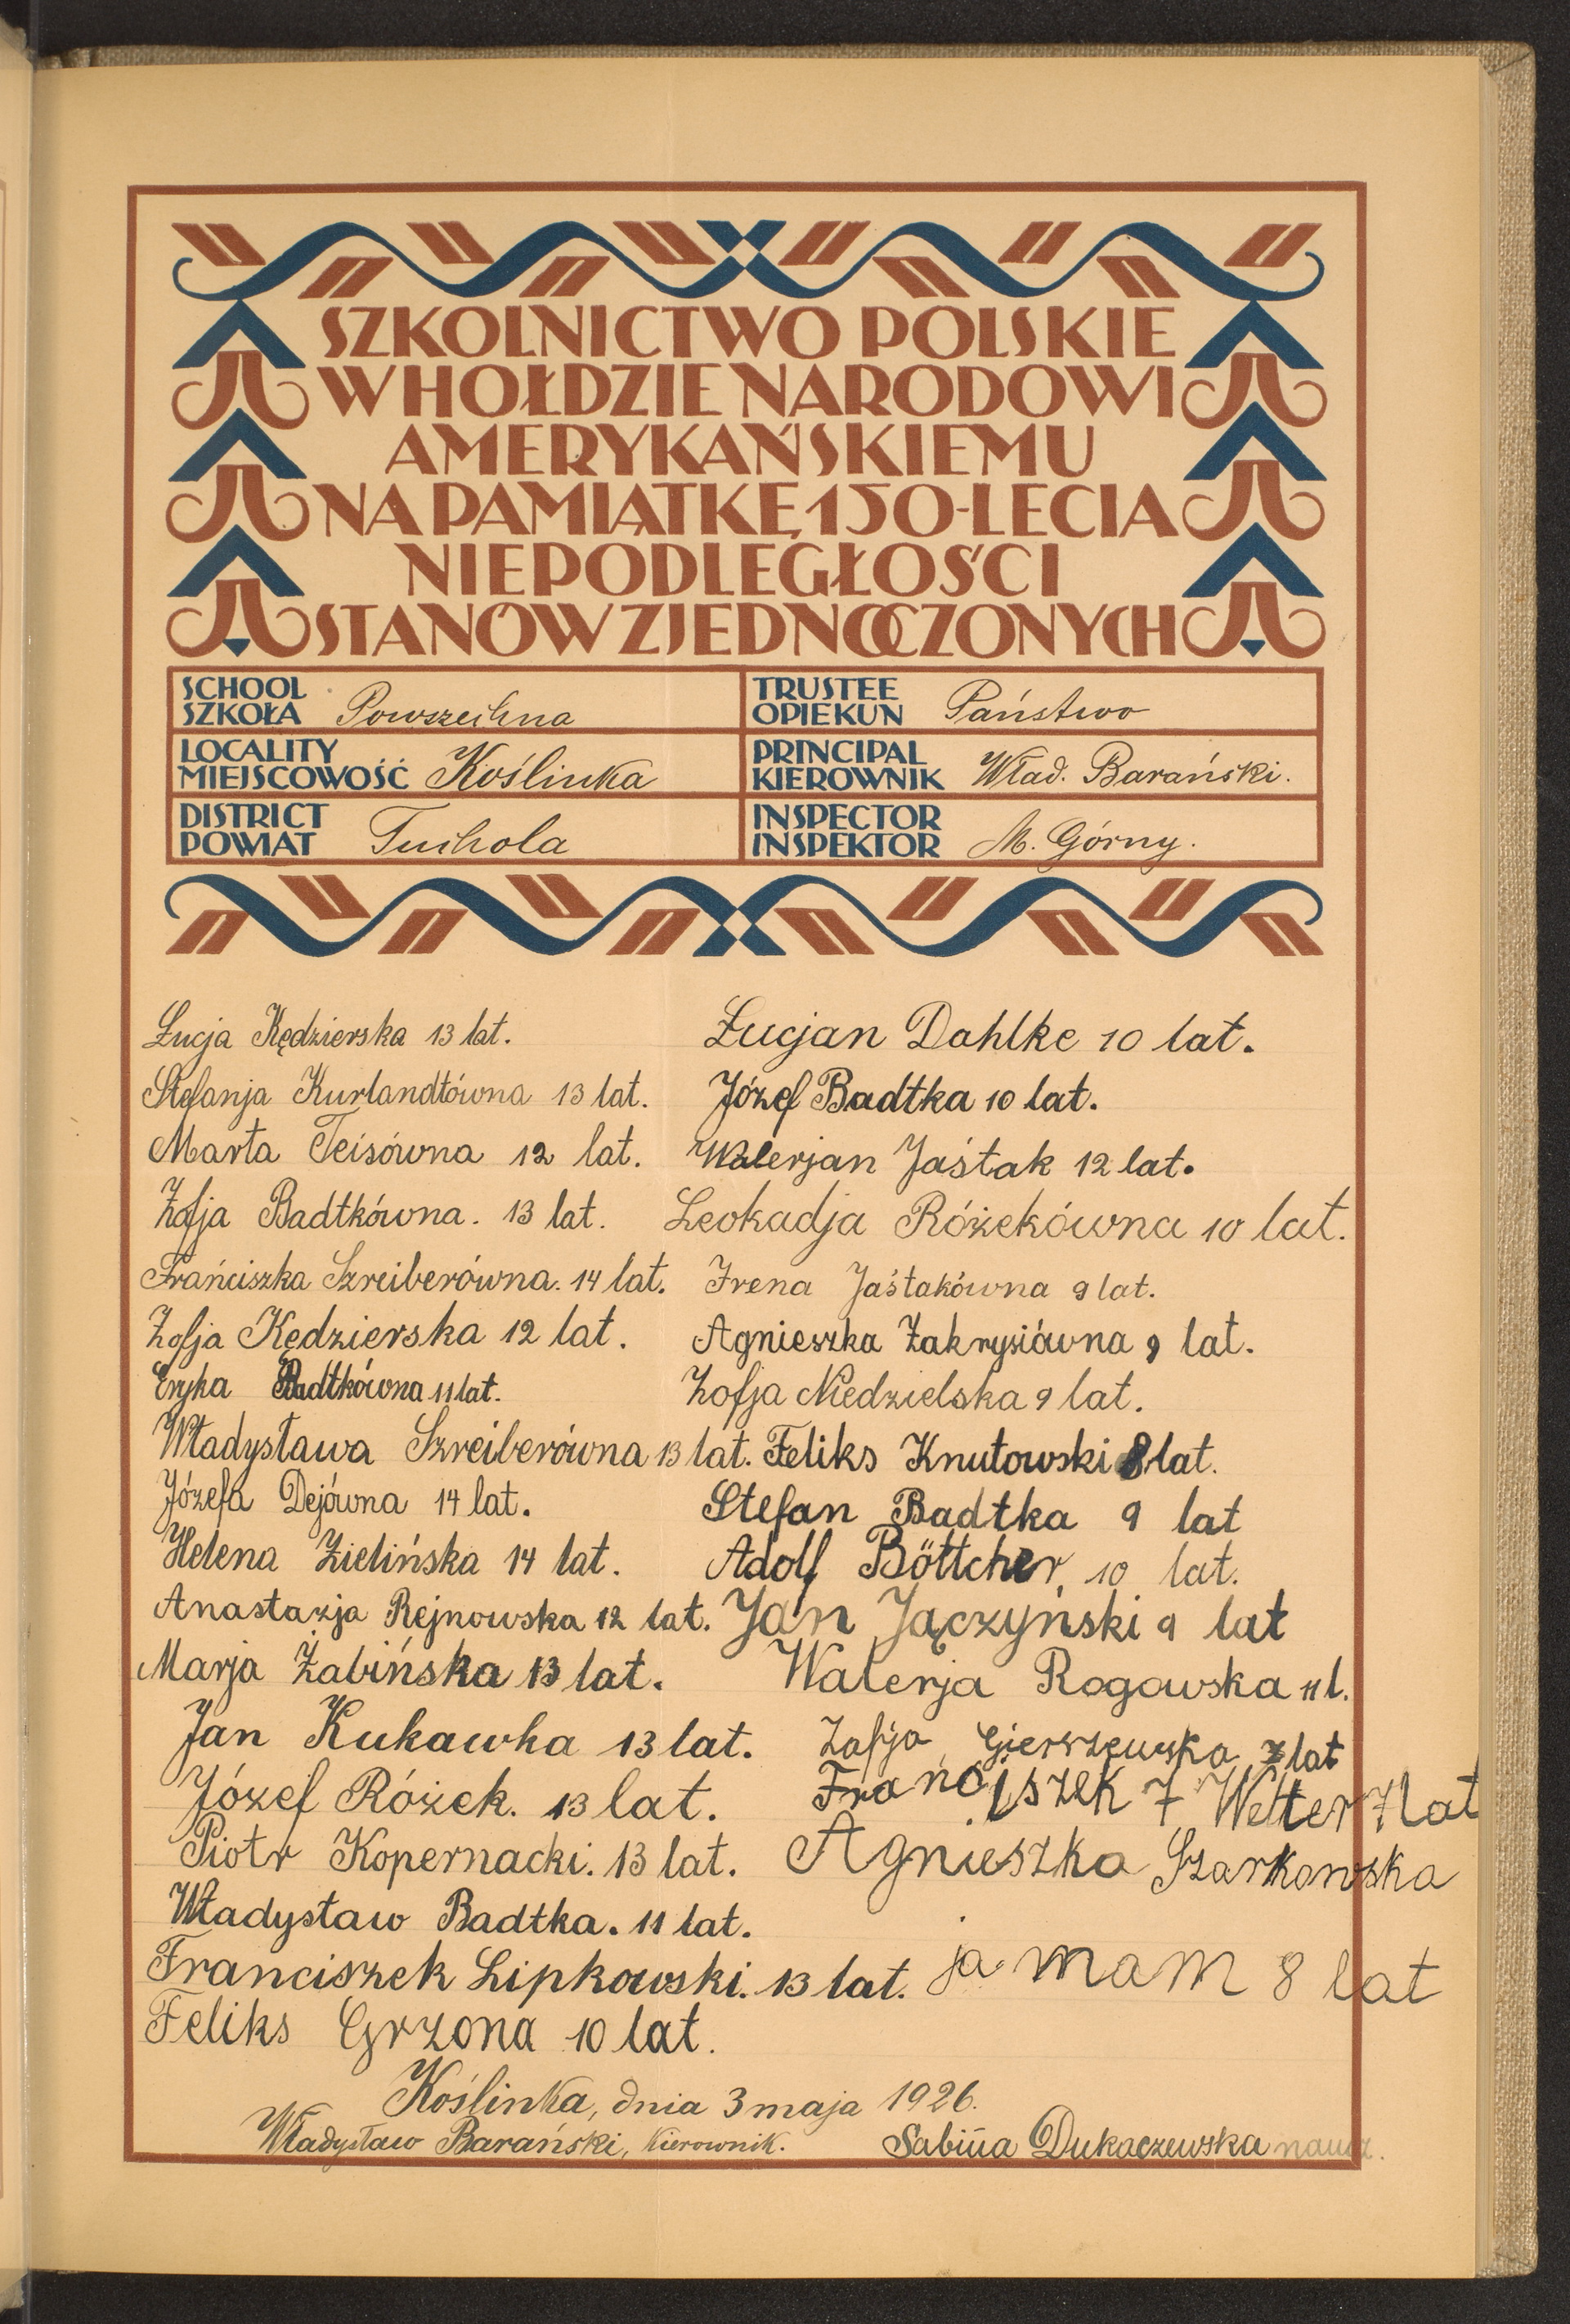 SZKOLNICTWO POLSKIE
W HOŁDZIE NARODOWI
AMERYKAŃSKIEMU
NA PAMIĄTKĘ 150-LECIA
NIEPODLEGŁOŚCI
STANÓW ZJEDNOCZONYCH
SCHOOL
SZKOŁA Powszechna
TRUSTEE
OPIEKUN Państwo
LOCALITY
MIEJSCOWOŚĆ Koślinka
PRINCIPAL
KIEROWNIK Wład. Barański.
DISTRICT
POWIAT Tuchola
INSPECTOR
INSPEKTOR M. Górny.
Łucja Kędzierska 13 lat.
Stefanja Kurlandtówna 13 lat.
Marta Teisówna 12 lat.
Zofja Badtkówna. 13 lat.
Frańciszka Szreiberówna. 14 lat.
Zofja Kędzierska 12 lat.
Eryka Badtkówna 11 lat.
Władysława Szreiberówna 13 lat.
Józefa Dejówna 14 lat.
Helena Zielińska 14 lat.
Anastazja Rejnowska 12 lat.
Marja Żabińska 13 lat.
Jan Kukawka 13 lat.
Józef Różek. 13 lat.
Piotr Kopernacki. 13 lat.
Władysław Badtka. 11 lat.
Franciszek Lipkowski. 13 lat.
Feliks Grzona 10 lat.
Łucjan Dahlke 10 lat.
Józef Badtka 10 lat.
Walerjan Jaśtak 12 lat.
Leokadja Różekówna 10 lat.
Irena Jaśtakówna 9 lat.
Agnieszka Zakrysiówna 9 lat.
Zofja Niedzielska 9 lat.
Feliks Knutowski 8 lat.
Stefan Badtka 9 lat
Adolf Böttcher, 10 lat.
Jan Jączyński 9 lat
Walerja Rogowska 11 l.
Zofja Gierszewska 7 lat
Franciszek 7 Welter 7 lat
Agnieszka Szarkowska
ja mam 8 lat
Koślinka, dnia 3 maja 1926.
Władysław Barański, kierownik.
Sabina Dukaczewska naucz.